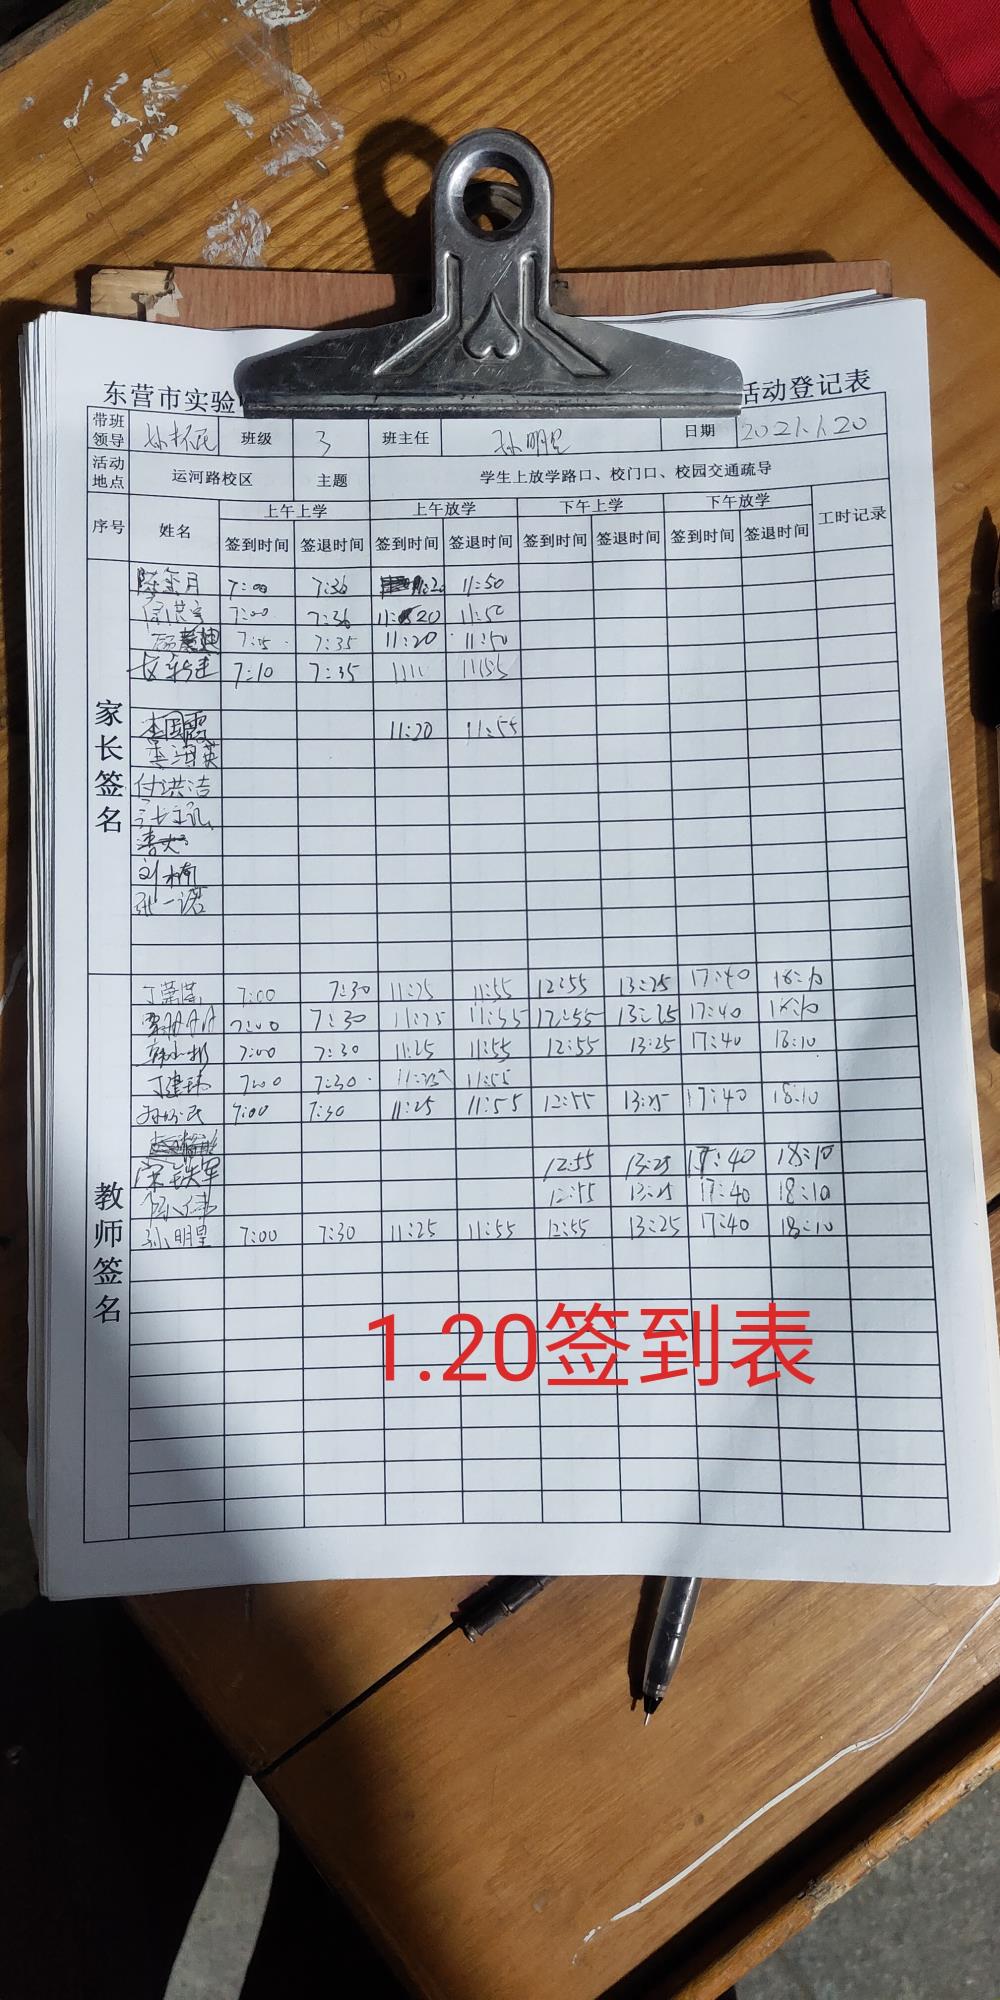 东营市实验 活动登记表
带班领导 班级 3 班主任 孙明星 日期 2021.1.20
活动地点 运河路校区 主题 学生上放学路口、校门口、校园交通疏导
序号 姓名 上午上学 上午放学 下午上学 下午放学 工时记录
签到时间 签退时间 签到时间 签退时间 签到时间 签退时间 签到时间 签退时间
家长签名
7:00 7:36 11:20 11:50
7:00 7:36 11:20 11:50
7:35 11:20 11:50
7:10 7:35 1155
11:20 11:55
付洪洁
刘楠
张一诺
教师签名
7:00 7:30 11:25 11:55 12:55 13:25 17:40 18:10
7:00 7:30 11:25 11:55 12:55 13:25 17:40 18:10
7:00 7:30 11:25 11:55 12:55 13:25 17:40 18:10
丁建玮 7:00 7:30 11:25 11:55
7:00 7:30 11:25 11:55 12:55 13:25 17:40 18:10
宋铁军 12:55 13:25 17:40 18:10
12:55 13:25 17:40 18:10
孙明星 7:00 7:30 11:25 11:55 12:55 13:25 17:40 18:10
1.20签到表